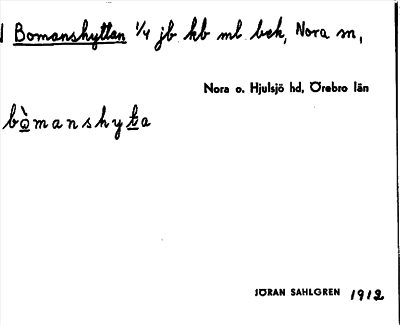 Bomanshyttan 1/4 jb. hb ml. bek, Nora sn,
Nora o. Hjulsjö hd, Örebro län
bòmanshyta
JÖRAN SAHLGREN 1912